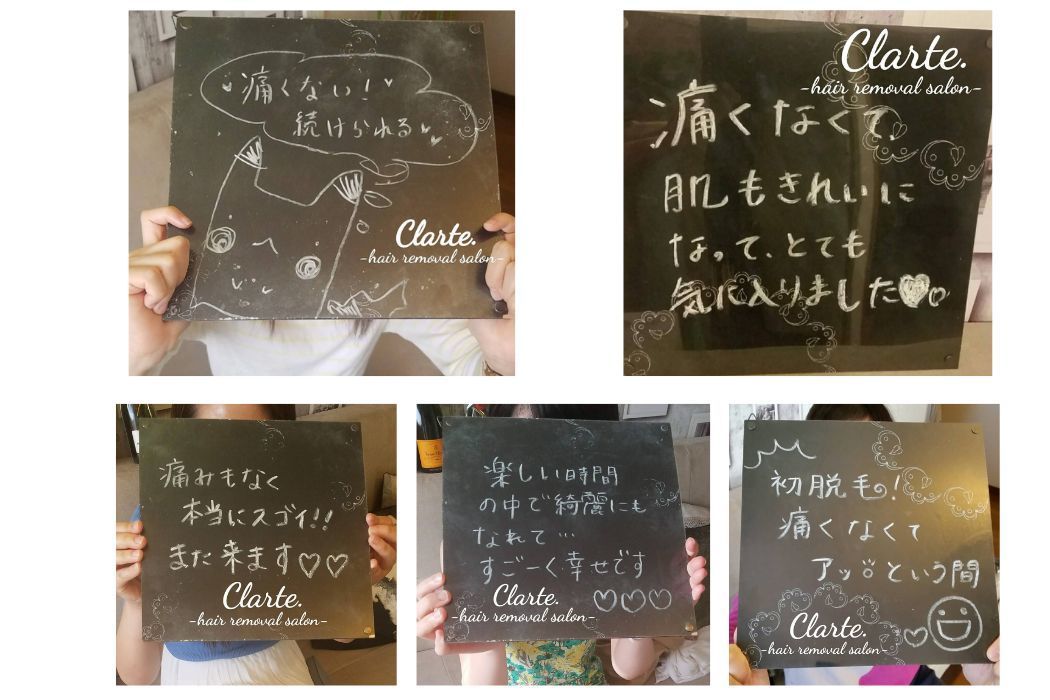 痛くない!
続けられる
Clarte.
-hair removal salon-
Clarte.
-hair removal salon-
痛くなくて
肌もきれいに
なって、とても
気に入りました♡♡
痛みもなく
本当にスゴイ!!
また来ます♡♡
Clarte.
-hair removal salon-
楽しい時間
の中で綺麗にも
なれて…
すごーく幸せです
♡♡♡
Clarte.
-hair removal salon-
初脱毛!
痛くなくて
アッという間
Clarte.
-hair removal salon-